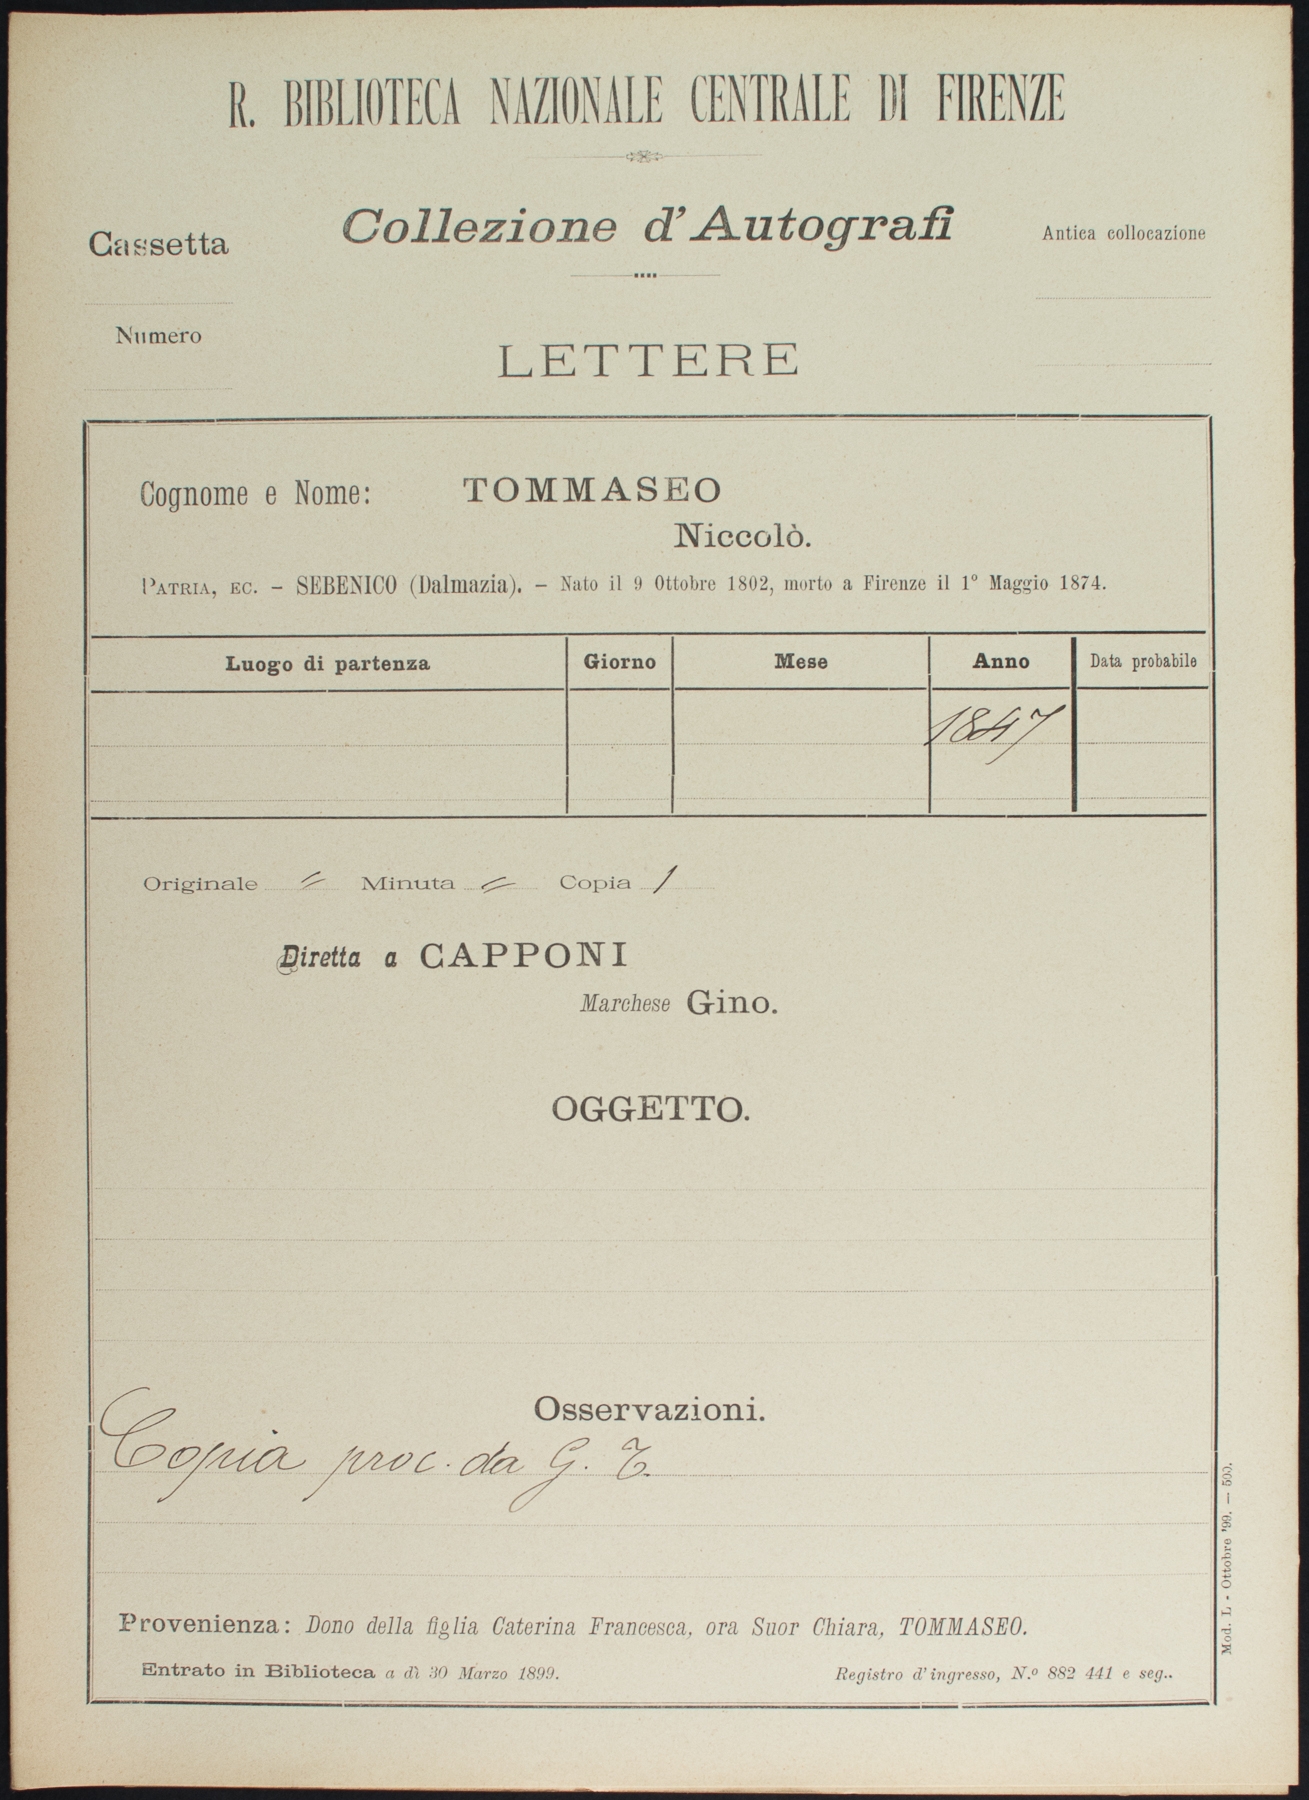 R. BIBLIOTECA NAZIONALE CENTRALE DI FIRENZE
Collezione d'Autografi
Cassetta
Antica collocazione
Numero
LETTERE
Cognome e Nome: TOMMASEO
Niccolò.
PATRIA, EC. – SEBENICO (Dalmazia). – Nato il 9 Ottobre 1802, morto a Firenze il 1º Maggio 1874.
Luogo di partenza Giorno Mese Anno Data probabile
1847
Originale = Minuta = Copia 1
Diretta a CAPPONI
Marchese Gino.
OGGETTO.
Osservazioni.
Copia proc. da G. T.
Provenienza: Dono della figlia Caterina Francesca, ora Suor Chiara, TOMMASEO.
Entrato in Biblioteca a dì 30 Marzo 1899. Registro d'ingresso, N.º 882 441 e seg..
Mod. L - Ottobre '99. — 500.